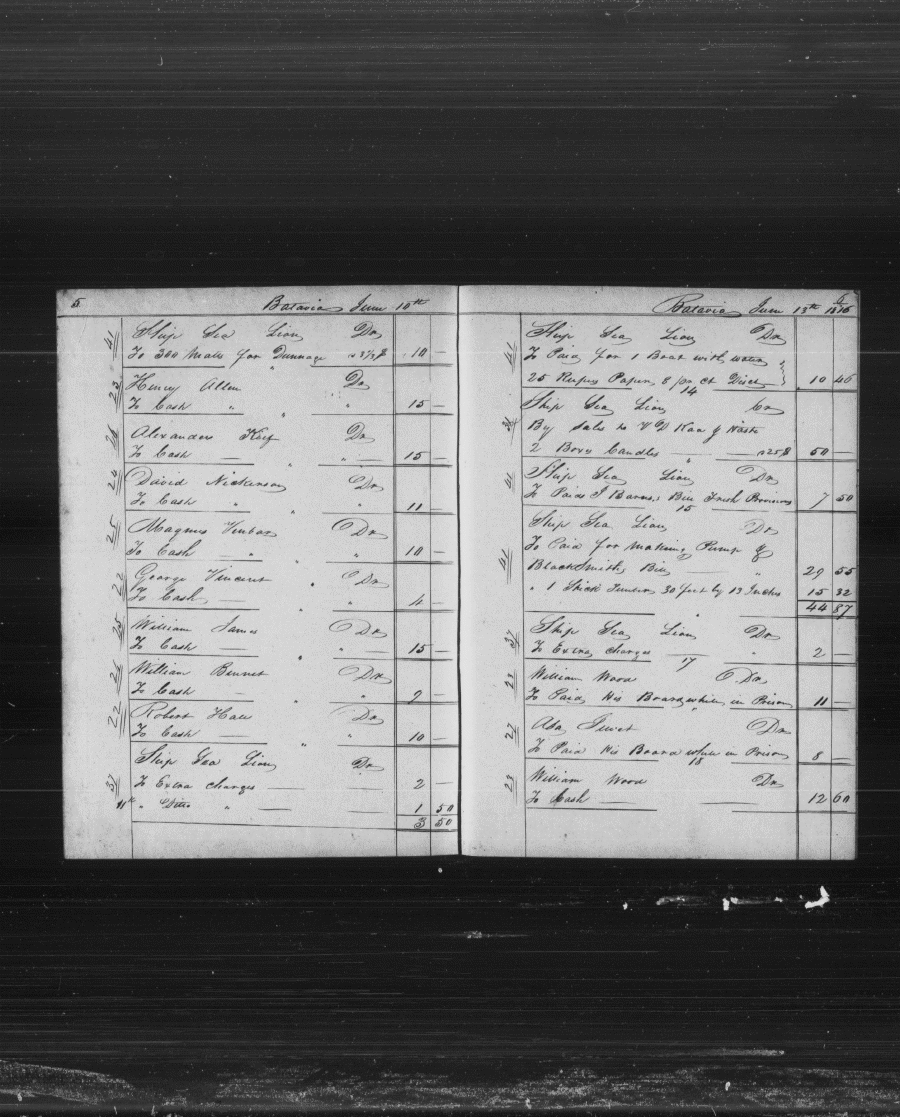 5 Batavia June 10th
41 Ship Sea Lion Dr
To 300 Mats for Dunnage 10 —
23 Henry Allen Dr
To Cash " " " 15 —
Alexander Dr
To Cash — " " — 15 —
24 David Nickerson Dr
To Cash " " " 11 —
25 Magnus Dr
To Cash — " " 10 —
22 George Vincent Dr
To Cash — " 4 —
25 William James Dr
To Cash — " — 15 —
26 William Bennet Dr
To Cash — " " 9 —
22 Robert Hall Dr
To Cash — " " 10 —
37 Ship Sea Lion Dr
To Extra Charges — 2 —
11th " Ditto " — 1 50
3 50
Batavia June 13th
41 Ship Sea Lion Dr
To Paid for 1 Boat with water
25 Rupes Paper 8 pr ct Disct 10 46
14
Ship Sea Lion Cr
By Sales to
2 Boxes Candles — " — 25 $ 50 —
41 Ship Sea Lion Dr
To Paid Bill Fresh Provisions 7 50
15
41 Ship Sea Lion Dr
To Paid for Making Pump &
BlackSmiths Bill — " 29 55
" 1 Stick Timber 30 feet by 13 Inches 15 32
44 87
37 Ship Sea Lion Dr
To Extra Charges — " 2 —
17
23 William Wood Dr
To Paid His Board while in Prison 11 —
27 Dr
To Paid His Board while in Prison 8 —
18
23 William Wood Dr
To Cash — — 12 60